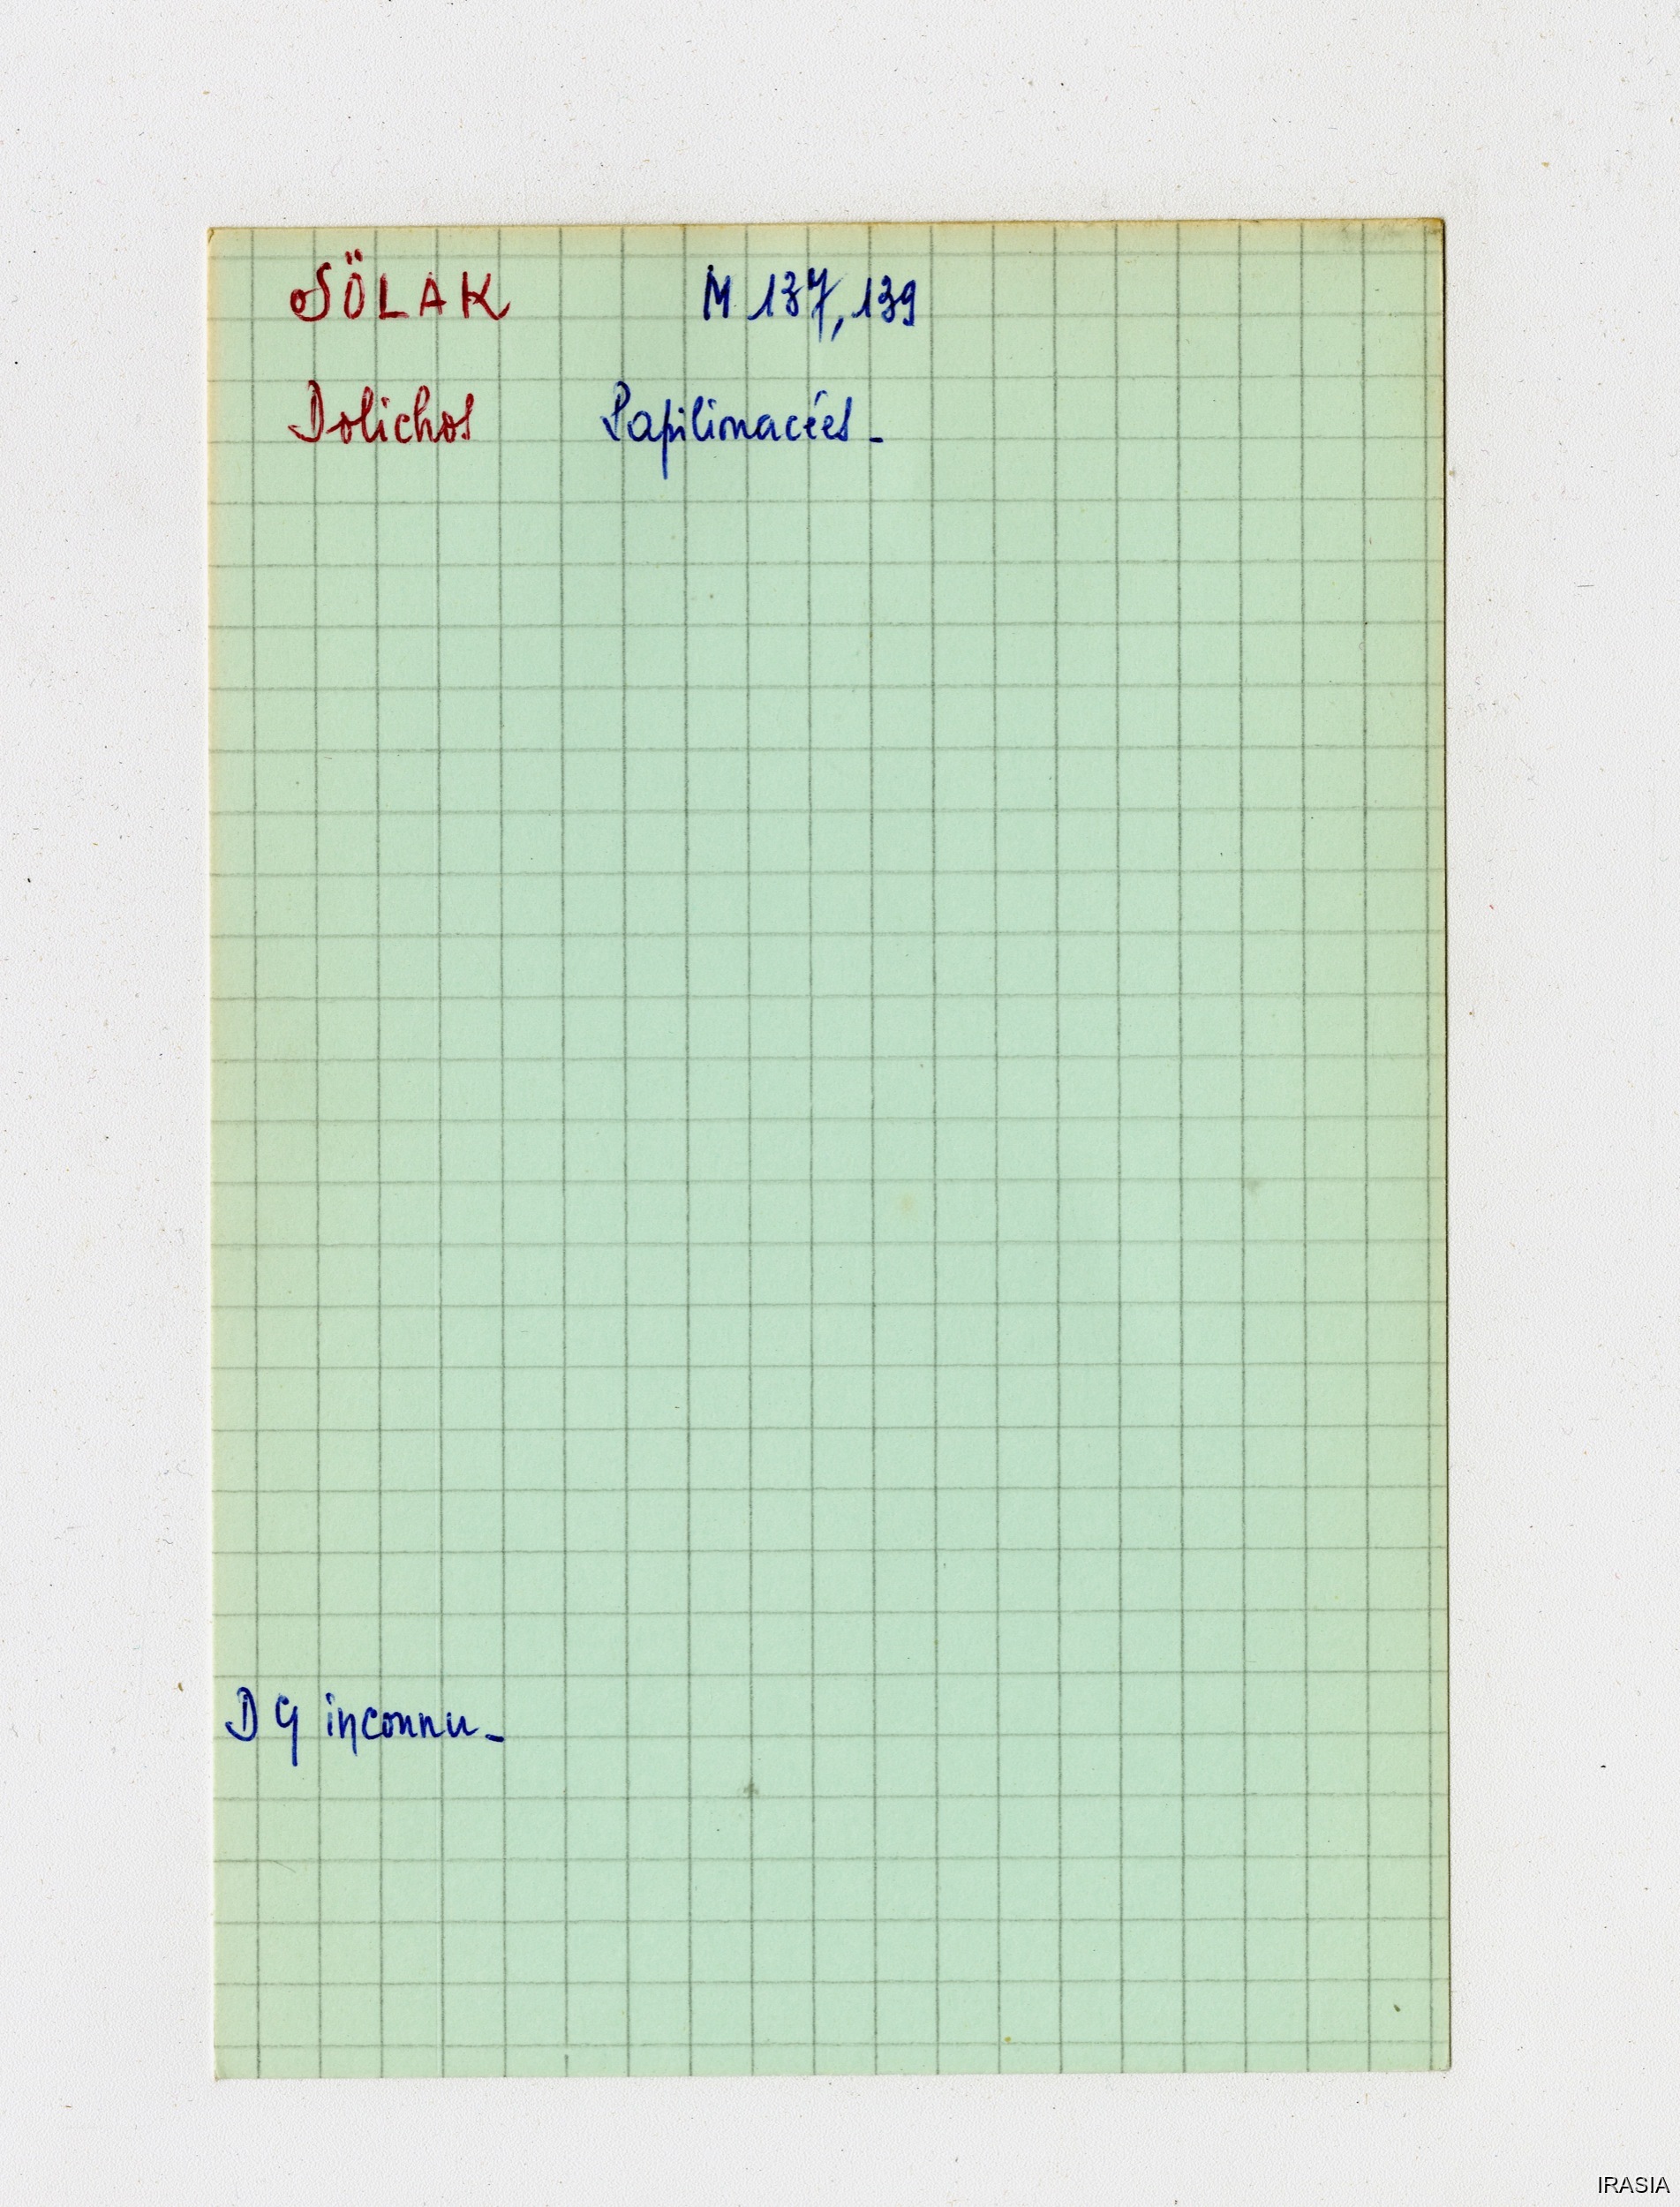 SÖLAK M 137, 139
Dolichos Papilionacées -
DG inconnu -
IRASIA